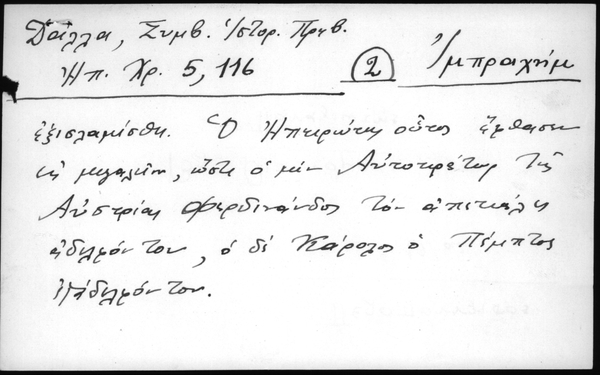 Δάλλα, Συμβ. Ἱστορ. Πρεβ.
Ἠπ. Χρ. 5, 116 (2) Ἰμπραχήμ
ἐξισλαμίσθη. Ὁ Ἠπειρώτης οὗτος ἔφθασεν
εἰς μεγαλεῖα, ὥστε ὁ μὲν Αὐτοκράτωρ τῆς
Αὐστρίας Φερδινάνδος τὸν ἀπεκάλει
ἀδελφόν του, ὁ δὲ Κάρολος ὁ Πέμπτος
ἐξάδελφόν του.